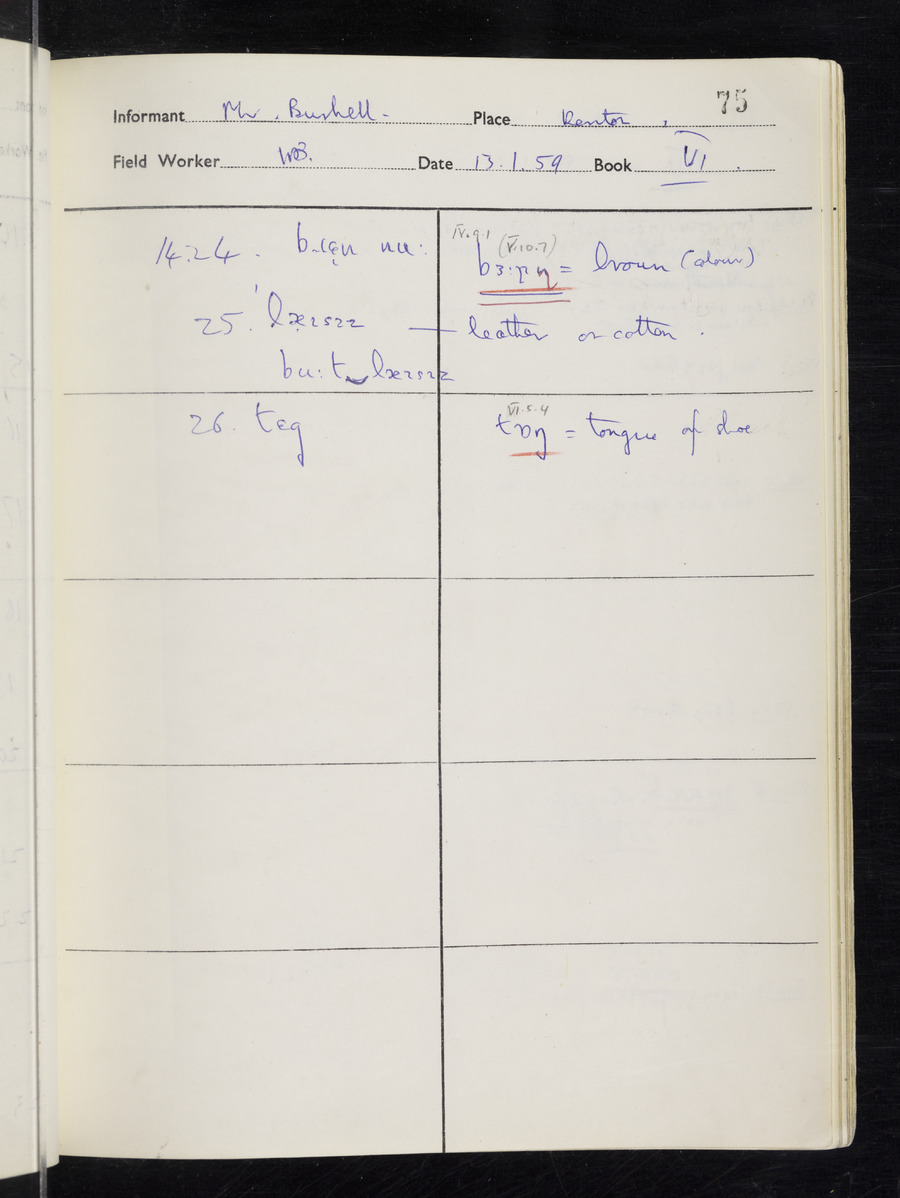 75
Informant Mr. Bushell. Place Kenton,
Field Worker Date 13.1.59 Book VI
14.24. nu:
IV.9.1 (V.10.7)
= brown (colour)
25. leather or cotton.
bu:t
VI.5.4
26. tɛg
tɒŋ = tongue of shoe